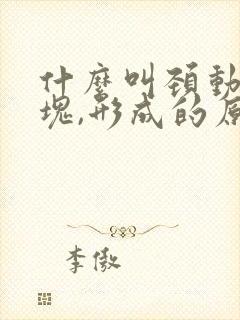 什麼叫頚動
塊,形成的原
李傲